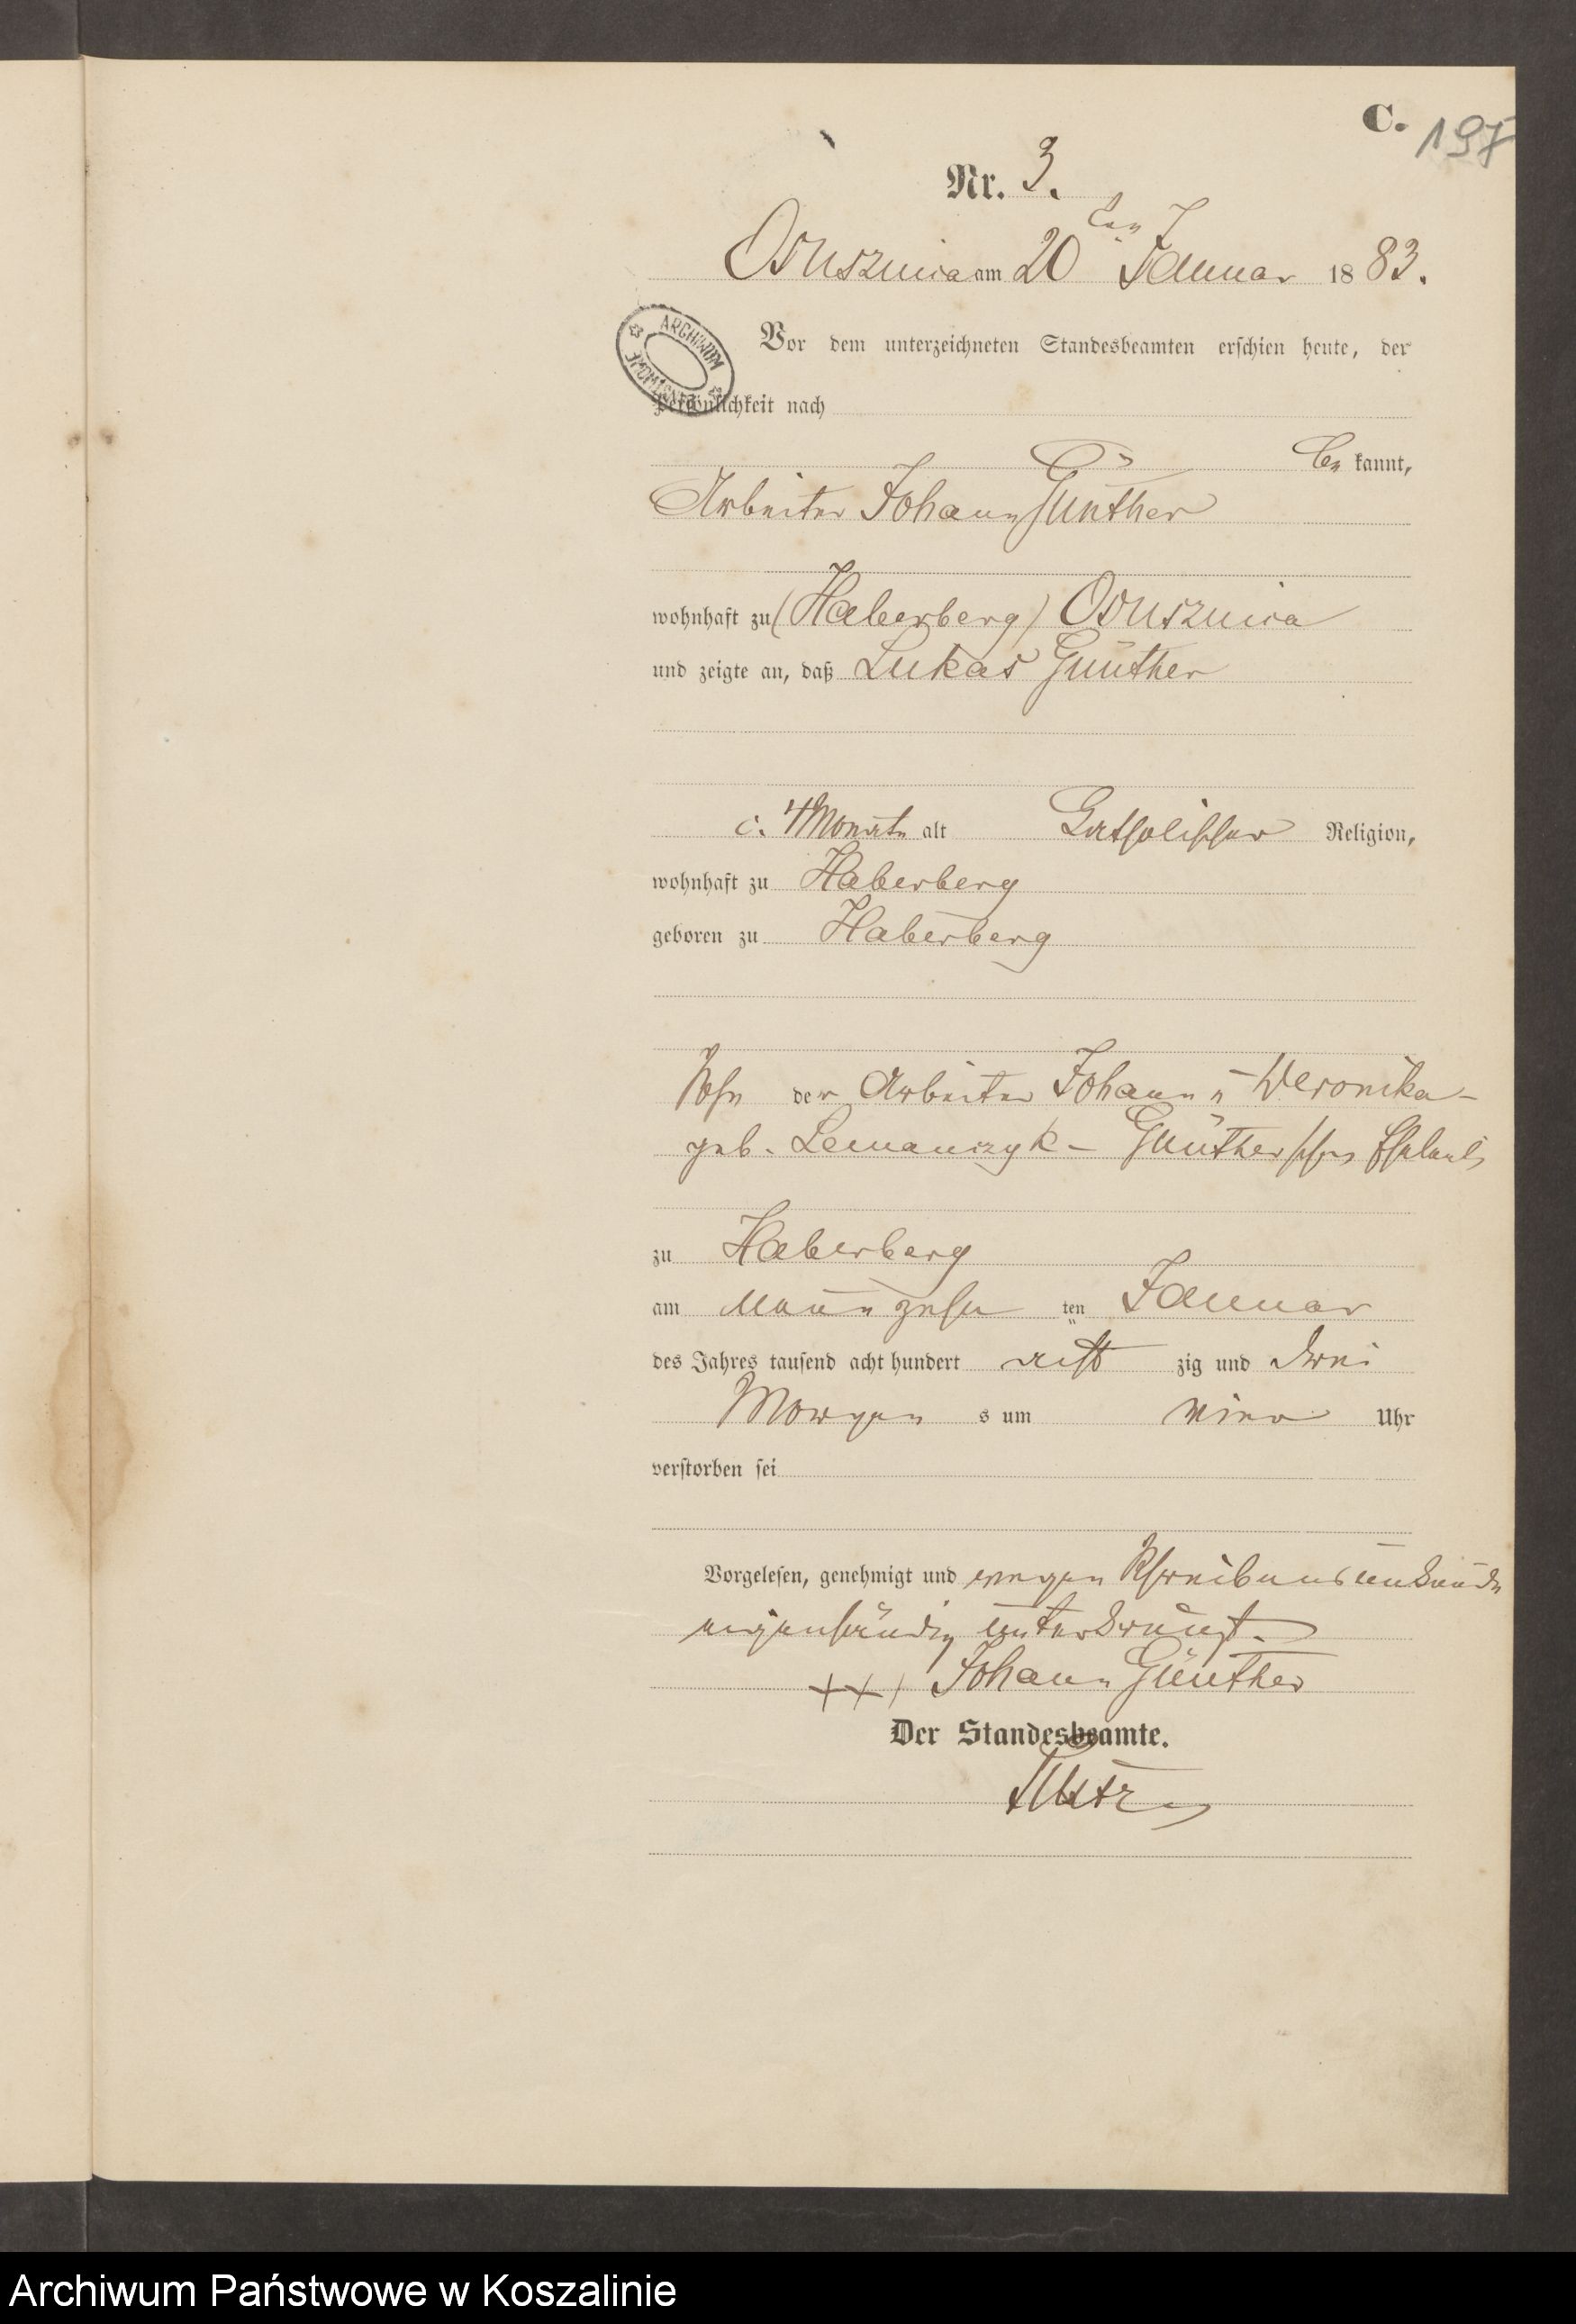 C. 197
Nr. 3.
Ossusznica am 20ten Januar 1883.
Vor dem unterzeichneten Standesbeamten erschien heute, der
Persönlichkeit nach
be kannt,
Arbeiter Johann Günther
wohnhaft zu (Haberberg) Ossusznica
und zeigte an, daß Lukas Günther
c. 4 Monate alt Catholischer Religion,
wohnhaft zu Haberberg
geboren zu Haberberg
Sohn der Arbeiter Johann u Weronika –
geb. Lemanczyk – Günther schen Eheleute
zu Haberberg
am neunzehn ten Januar
des Jahres tausend acht hundert acht zig und drei
Morgen s um vier Uhr
verstorben sei
Vorgelesen, genehmigt und wegen Schreibensunkunde
eigenhändig unterkreuzt.
+++ Johann Günther
Der Standesbeamte.
ARCHIWUM
Archiwum Państwowe w Koszalinie